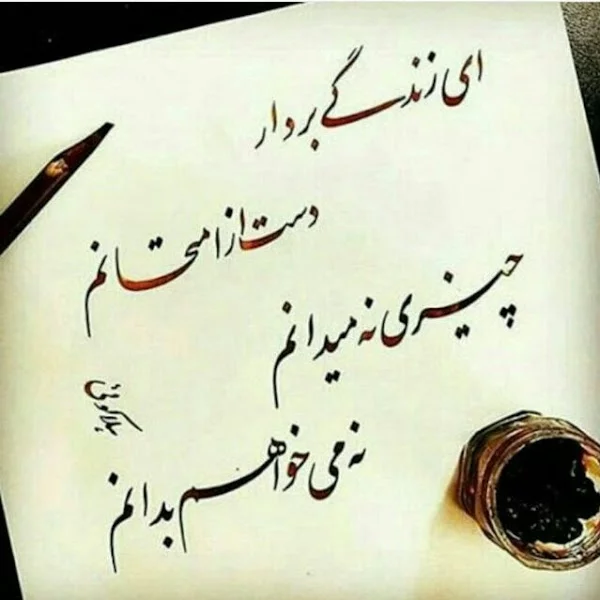 ای زندگی بردار
دست از امتحانم
چیزی نه میدانم
نه می خواهم بدانم